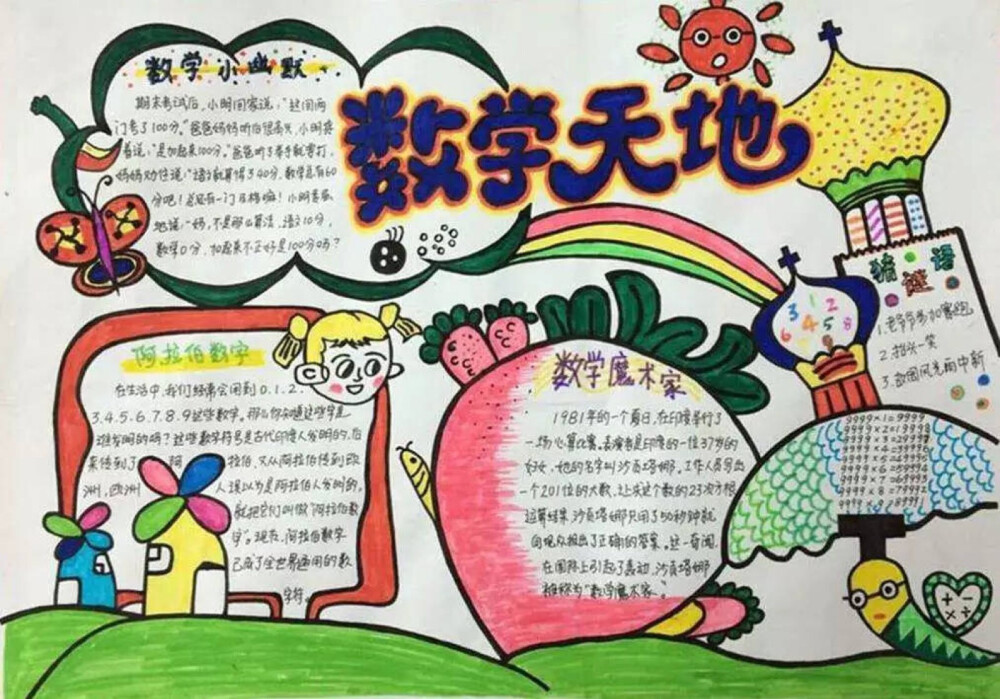 数学天地
数学小幽默
期末考试后,小明回家说:"这回两
门考了100分。"爸爸妈妈听后很高兴,小明接
着说:"是加起来100分。"爸爸听了举手就要打,
妈妈劝住说:"语文就算得了40分,数学总有60
分吧!总还有一门及格嘛!小明委屈
地说:"妈,不是那么算法,语文10分,
数学0分,加起来不正好是100分吗?
阿拉伯数字
在生活中,我们经常会用到0.1.2.
3.4.5.6.7.8.9这些数字。那么你知道这些字是
谁发明的吗?这些数字符号是古代印度人发明的,后
来传到了阿拉伯,又从阿拉伯传到欧
洲,欧洲人误以为是阿拉伯人发明的,
就把它们叫做"阿拉伯数
字"。现在,阿拉伯数字
已成了全世界通用的数
字符。
数学魔术家
1981年的一个夏日,在印度举行了
一场心算比赛。表演者是印度的一位37岁的
妇女,她的名字叫沙贡塔娜。工作人员写出
一个201位的大数,让求这个数的23次方根
运算结果,沙贡塔娜只用了50秒钟就
向观众报出了正确的答案。这一奇闻
在国际上引起了轰动,沙贡塔娜
被称为"数学魔术家"。
猜谜语
1.老爷爷参加赛跑
2.抬头一笑
3.故国风光雨中新
3 1 2
6 4 5 8
9
9999×1=9999
9999×2=19998
9999×3=29997
9999×4=39996
9999×5=49995
9999×6=59994
9999×7=69993
9999×8=79992
+ - × ÷